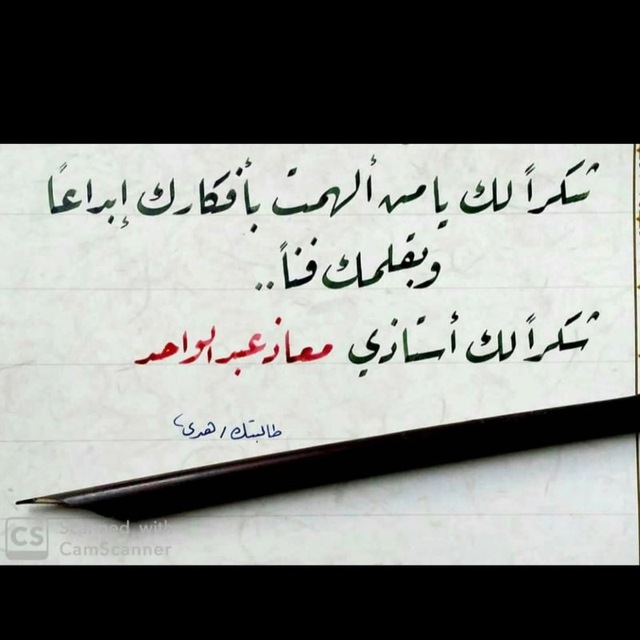 شكراً لك يا من ألهمت بأفكارك إبداعاً
وبقلمك فناً..
شكراً لك أستاذي معاذ عبدالواحد
طالبتك / هدى
CS Scanned with
CamScanner